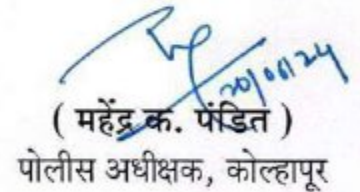 20/06/24
( महेंद्र क. पंडित )
पोलीस अधीक्षक, कोल्हापूर